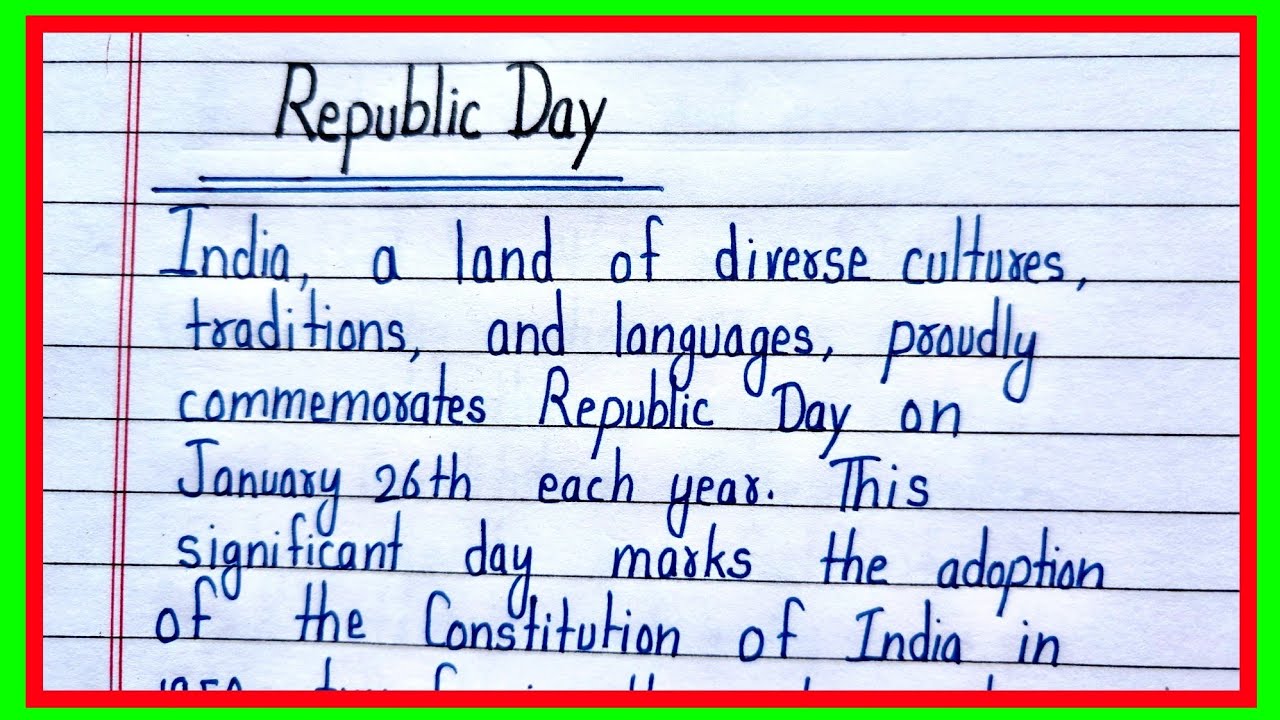 Republic Day
India, a land of diverse cultures,
traditions, and languages, proudly
commemorates Republic Day on
January 26th each year. This
significant day marks the adoption
of the Constitution of India in